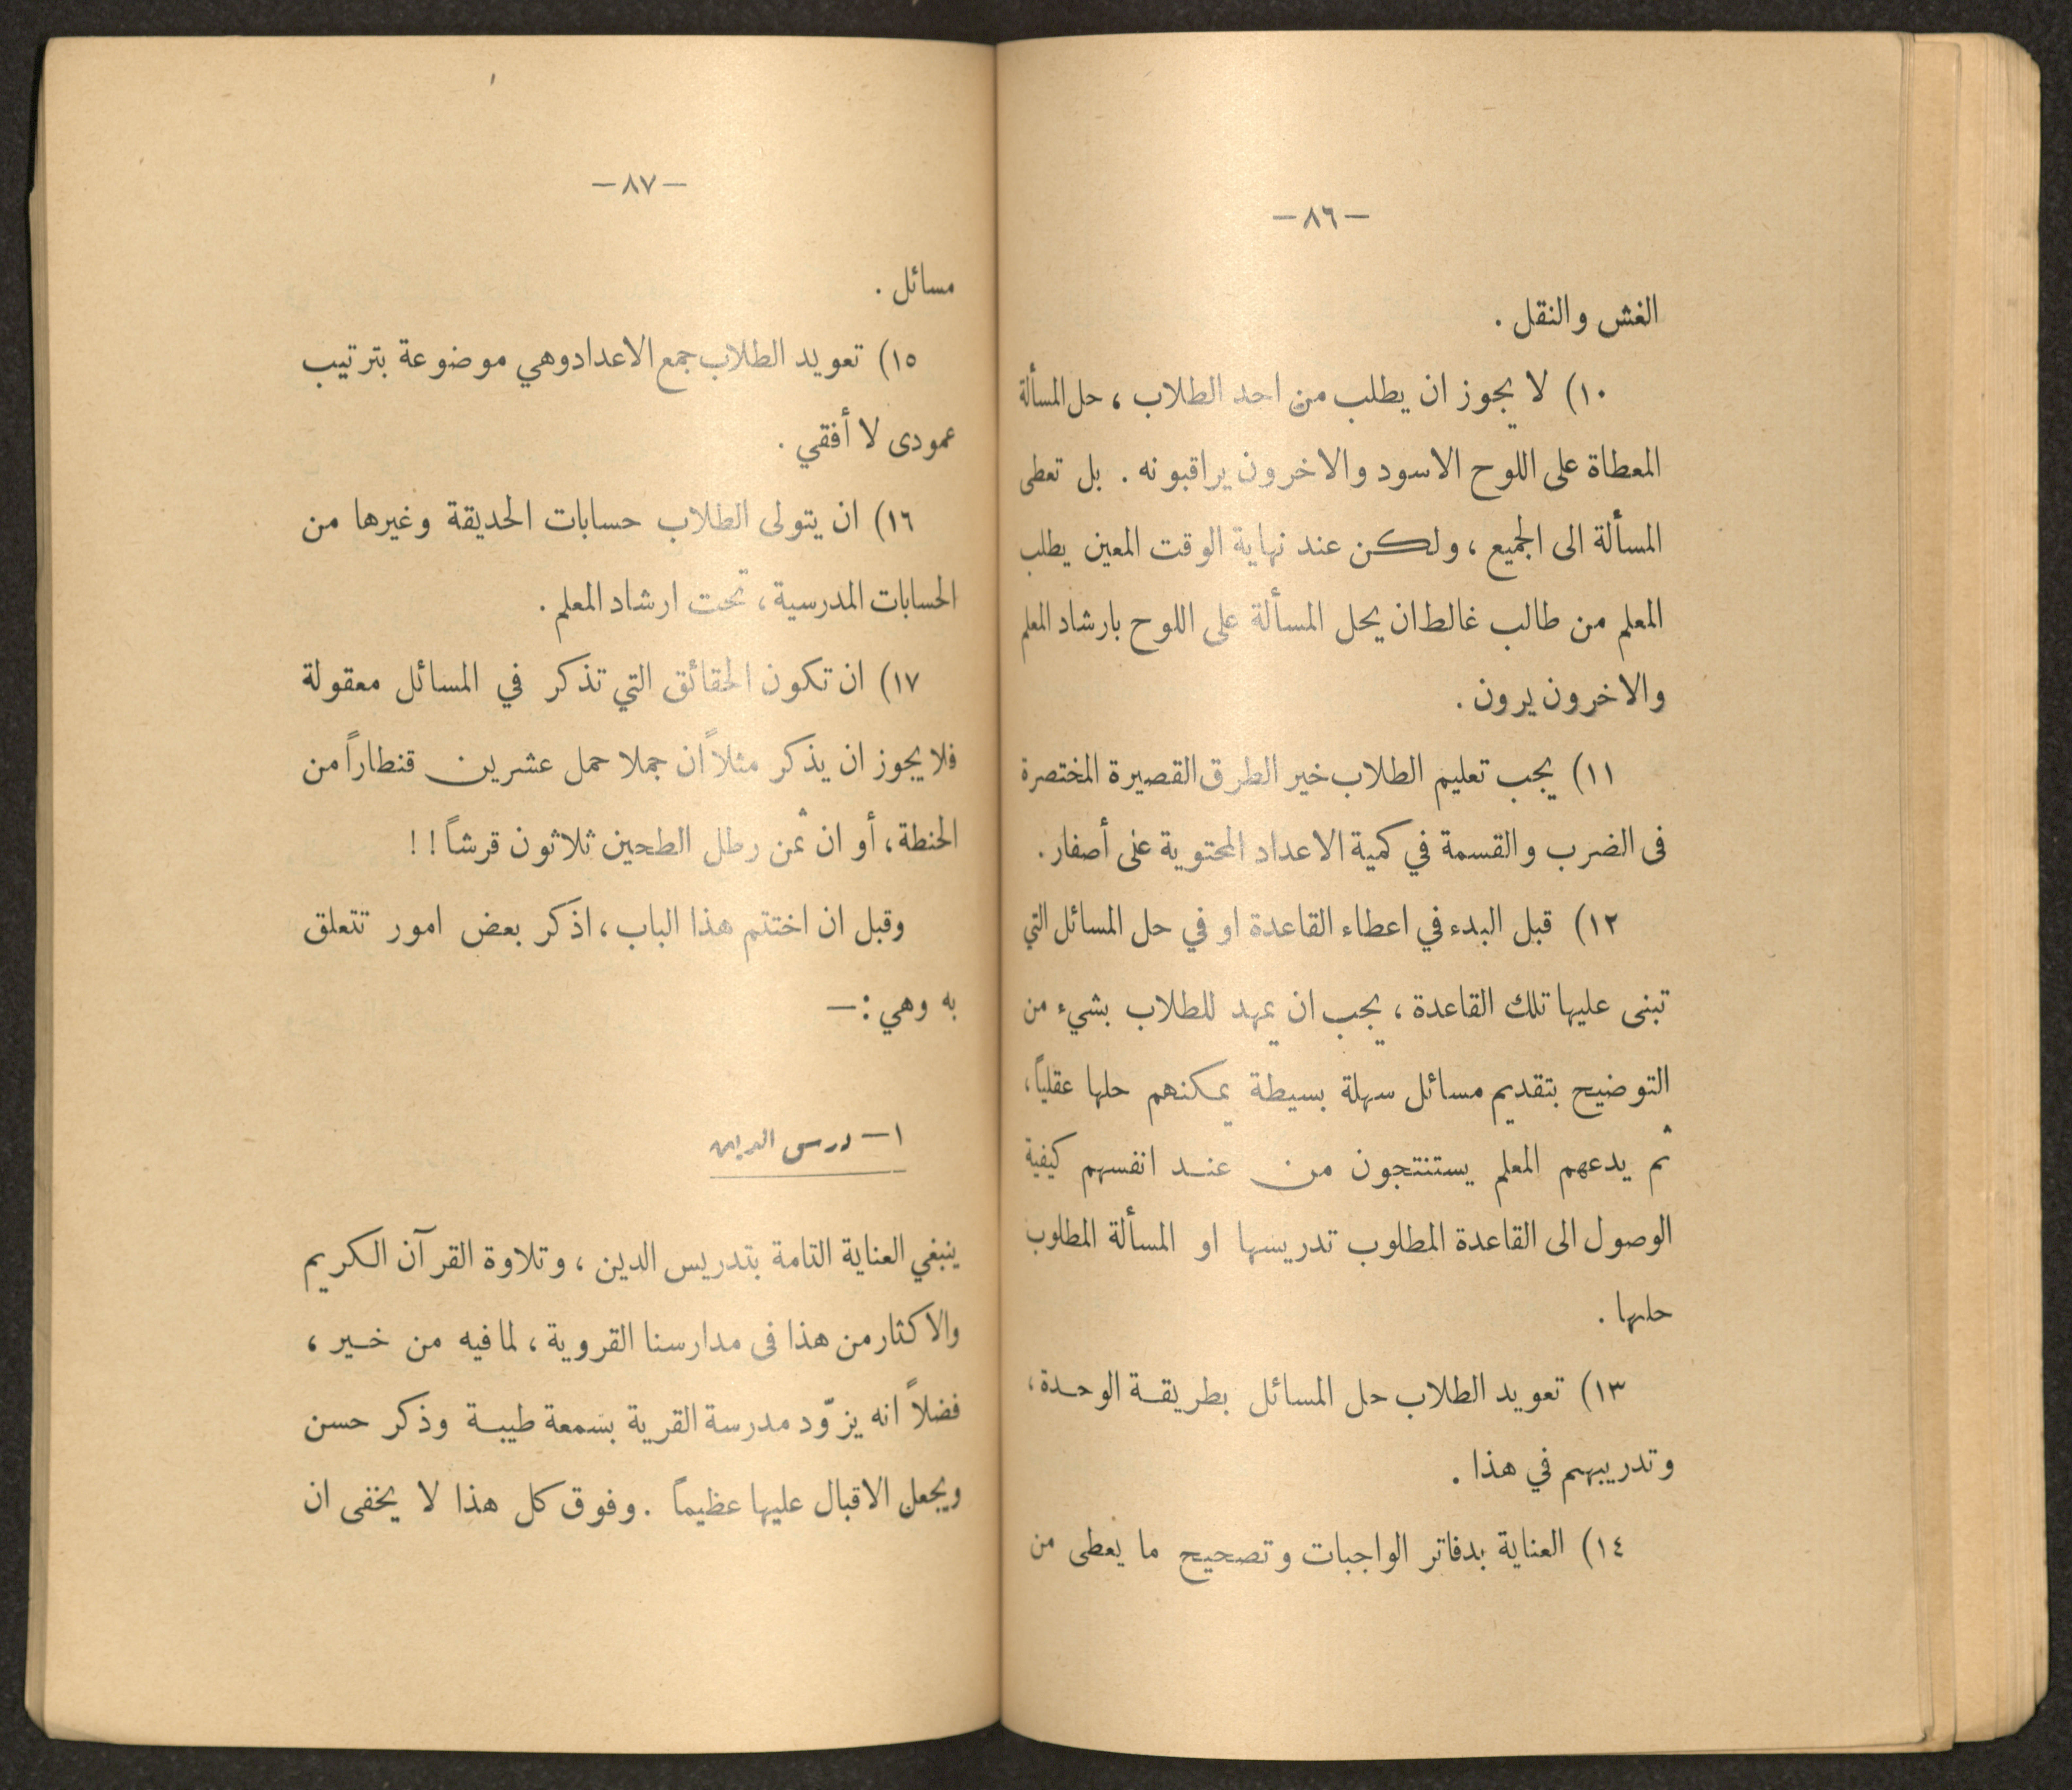 —٨٦—
الغش والنقل .
١٠) لا يجوز ان يطلب من احد الطلاب ، حل المسألة
المعطاة على اللوح الاسود والاخرون يراقبونه . بل تعطى
المسألة الى الجميع ، ولكن عند نهاية الوقت المعين يطلب
المعلم من طالب غالط ان يحل المسألة على اللوح بارشاد المعلم
والاخرون يرون .
١١) يجب تعليم الطلاب خير الطرق القصيرة المختصرة
فى الضرب والقسمة في كمية الاعداد المحتوية على أصفار .
١٢) قبل البدء في اعطاء القاعدة او في حل المسائل التي
تبنى عليها تلك القاعدة ، يجب ان يمهد للطلاب بشيء من
التوضيح بتقديم مسائل سهلة بسيطة يمكنهم حلها عقلياً ،
ثم يدعهم المعلم يستنتجون من عند انفسهم كيفية
الوصول الى القاعدة المطلوب تدريسها او المسألة المطلوب
حلها .
١٣) تعويد الطلاب حل المسائل بطريقة الوحدة ،
وتدريبهم في هذا .
١٤) العناية بدفاتر الواجبات وتصحيح ما يعطى من
—٨٧—
مسائل .
١٥) تعويد الطلاب جمع الاعداد وهي موضوعة بترتيب
عمودى لا أفقي .
١٦) ان يتولى الطلاب حسابات الحديقة وغيرها من
الحسابات المدرسية ، تحت ارشاد المعلم .
١٧) ان تكون الحقائق التي تذكر في المسائل معقولة
فلا يجوز ان يذكر مثلاً ان جملا حمل عشرين قنطاراً من
الحنطة ، أو ان ثمن رطل الطحين ثلاثون قرشاً ! !
وقبل ان اختتم هذا الباب ، اذكر بعض امور تتعلق
به وهي : —
١ — درس الدين
ينبغي العناية التامة بتدريس الدين ، وتلاوة القرآن الكريم
والاكثار من هذا فى مدارسنا القروية ، لما فيه من خير ،
فضلاً انه يزوّد مدرسة القرية بسمعة طيبة وذكر حسن
ويجعل الاقبال عليها عظيماً . وفوق كل هذا لا يخفى ان